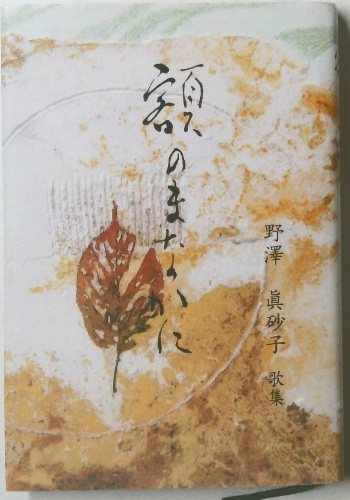 額のまなかに
野澤 眞砂子 歌集